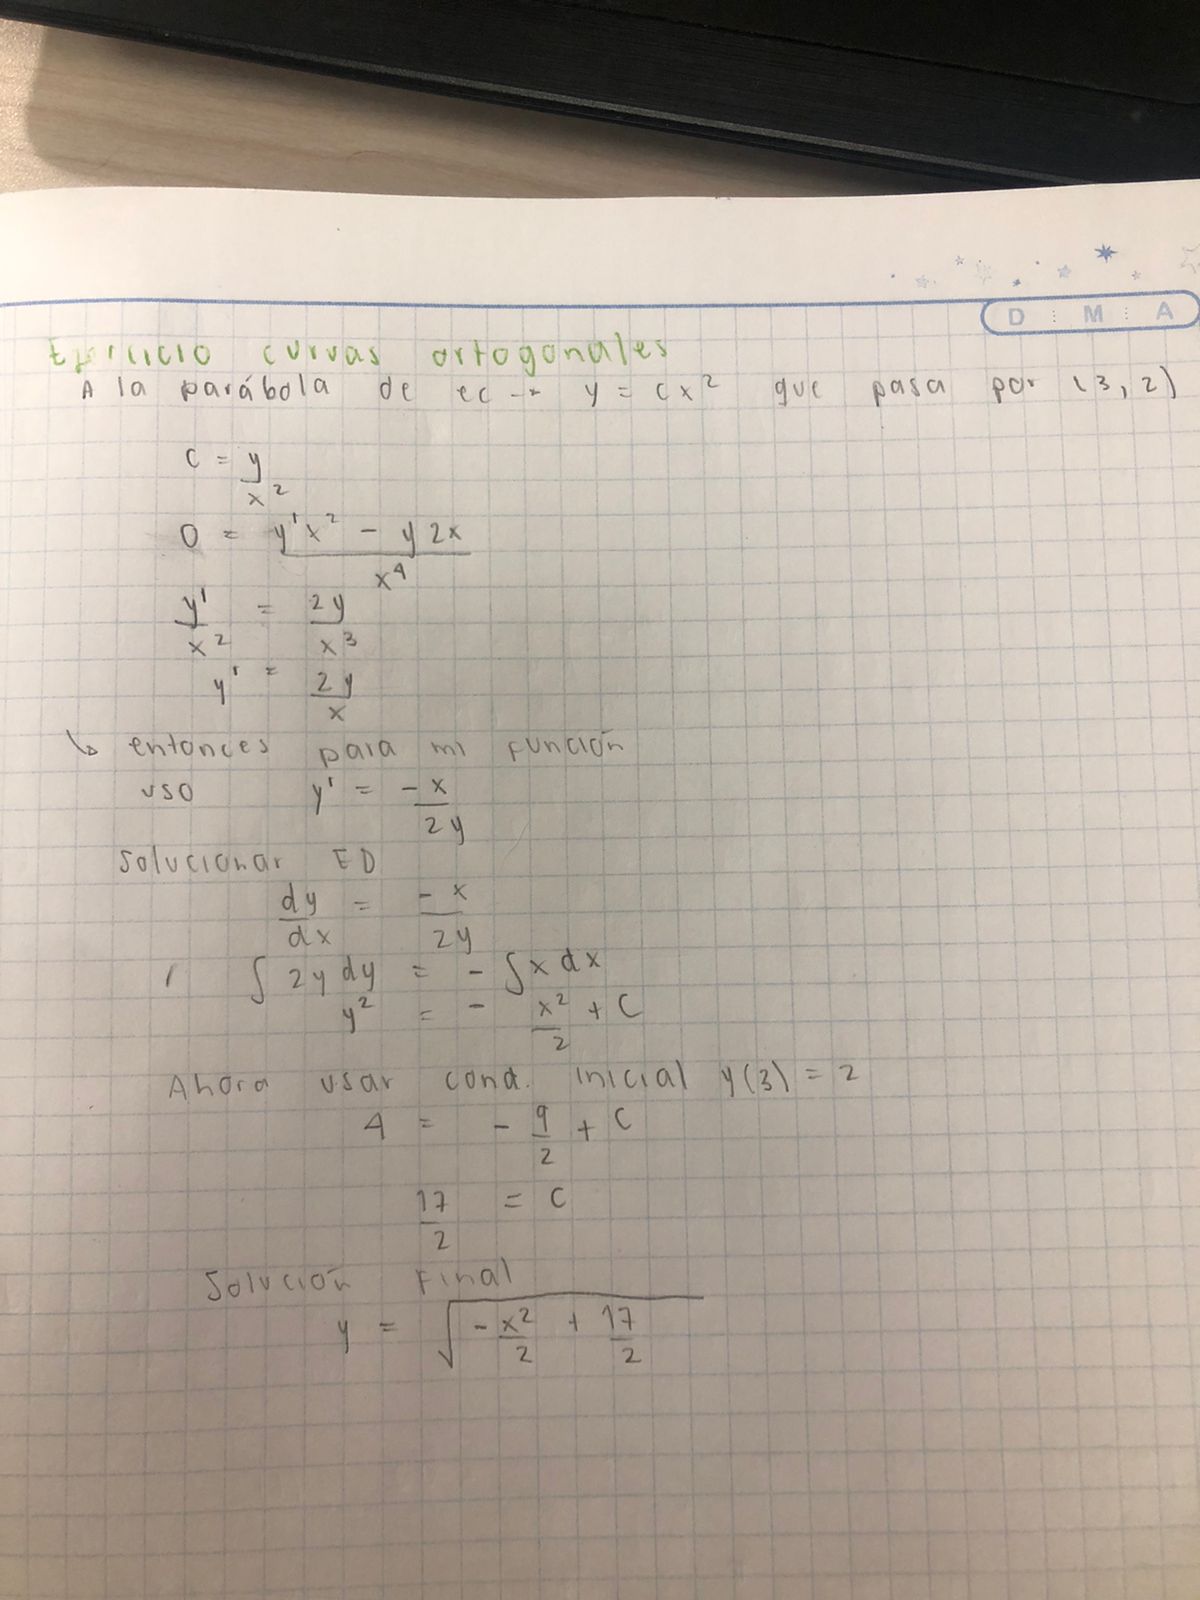 D : M : A
Ejercicio curvas ortogonales
A la parábola de ec → y = cx² que pasa por (3,2)
C = y/x²
0 = (y'x² - y2x)/x⁴
y'/x² = 2y/x³
y' = 2y/x
↳ entonces para mi función
uso y' = -x/2y
Solucionar ED
dy/dx = -x/2y
∫ 2y dy = - ∫ x dx
y² = - x²/2 + C
Ahora usar cond. inicial y(3) = 2
4 = - 9/2 + C
17/2 = C
Solución Final
y = √(-x²/2 + 17/2)